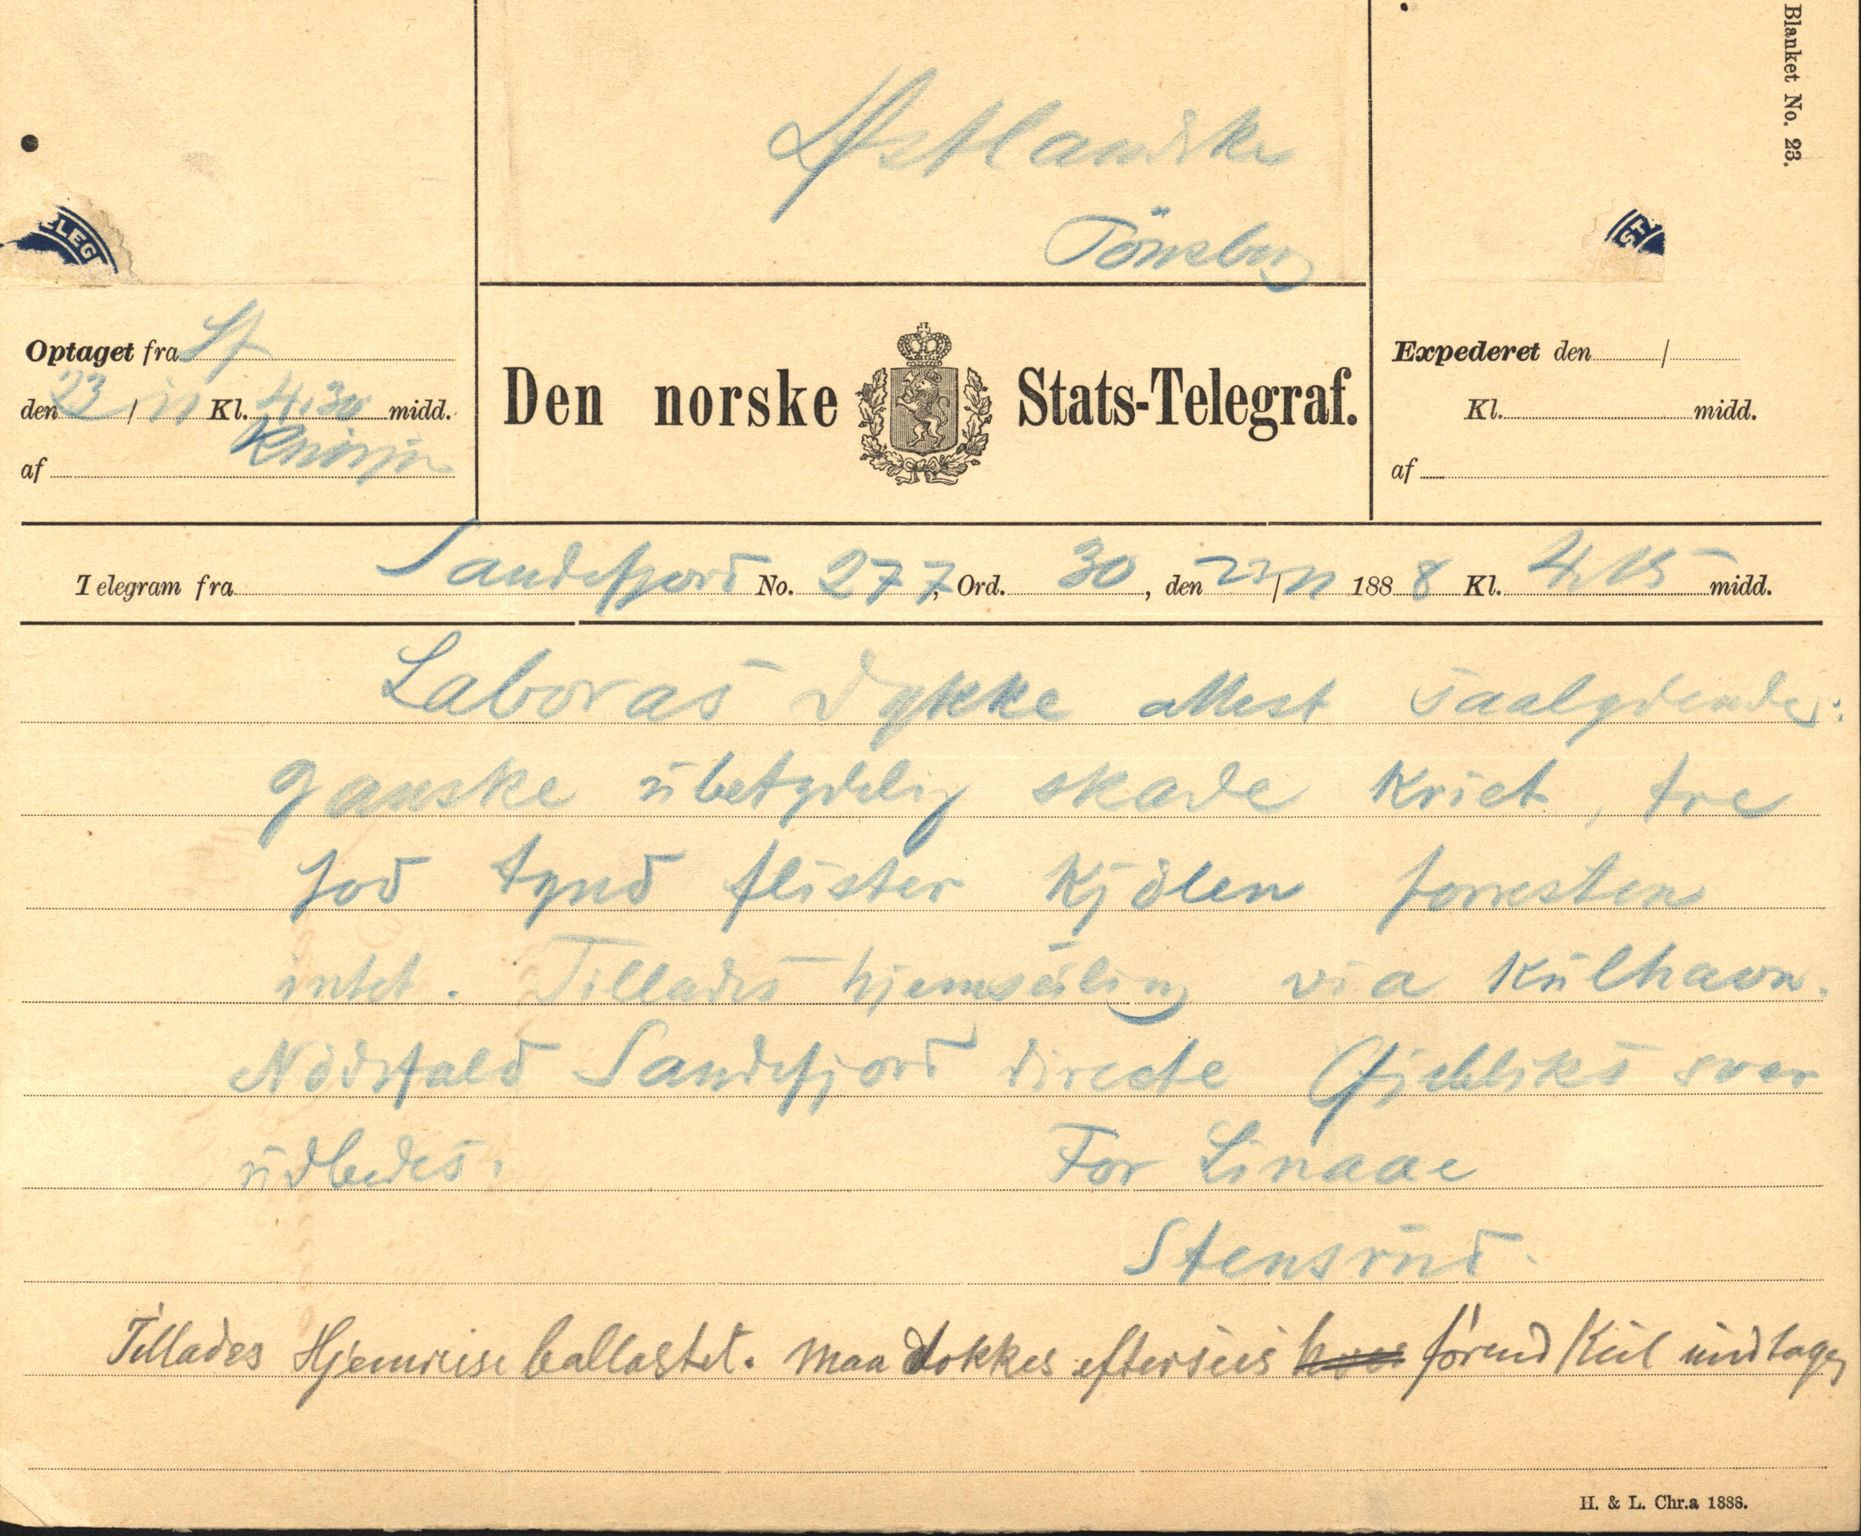 Blanket No. 23.
Østlandske
Tönsberg
ELEG
ST
Optaget fra Sf
den 23 / 11 Kl. 4.30 midd.
af
Den norske Stats-Telegraf.
Expederet den /
Kl. midd.
af
Telegram fra Sandefjord No. 277, Ord. 30, den 23/11 1888 Kl. 4,15 midd.
Laboras Dykke attest saalydende:
ganske übetydelig skade Kriet, tre
fod tynd flister Kjölen forresten
intet. Tillades hjemseiling via Külhavn.
Nödsfald Sandefjord directe Øiebliks svar
üdbedes. For Linaae
Stensrüd.
Tillades Hjemreise ballastet. Maa dokkes eftersees förend Kül indtages
H. & L. Chr.a 1888.